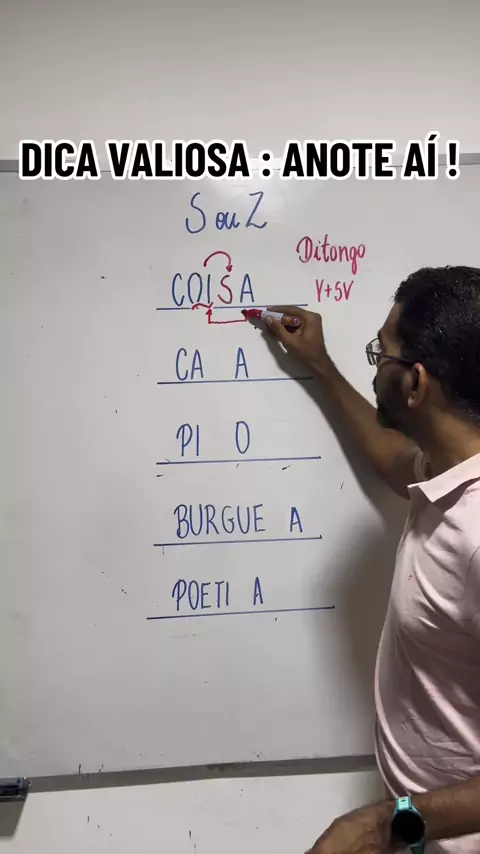 DICA VALIOSA : ANOTE AÍ !
S ou Z
Ditongo
V+SV
COISA
CA A
PI O
BURGUE A
POETI A